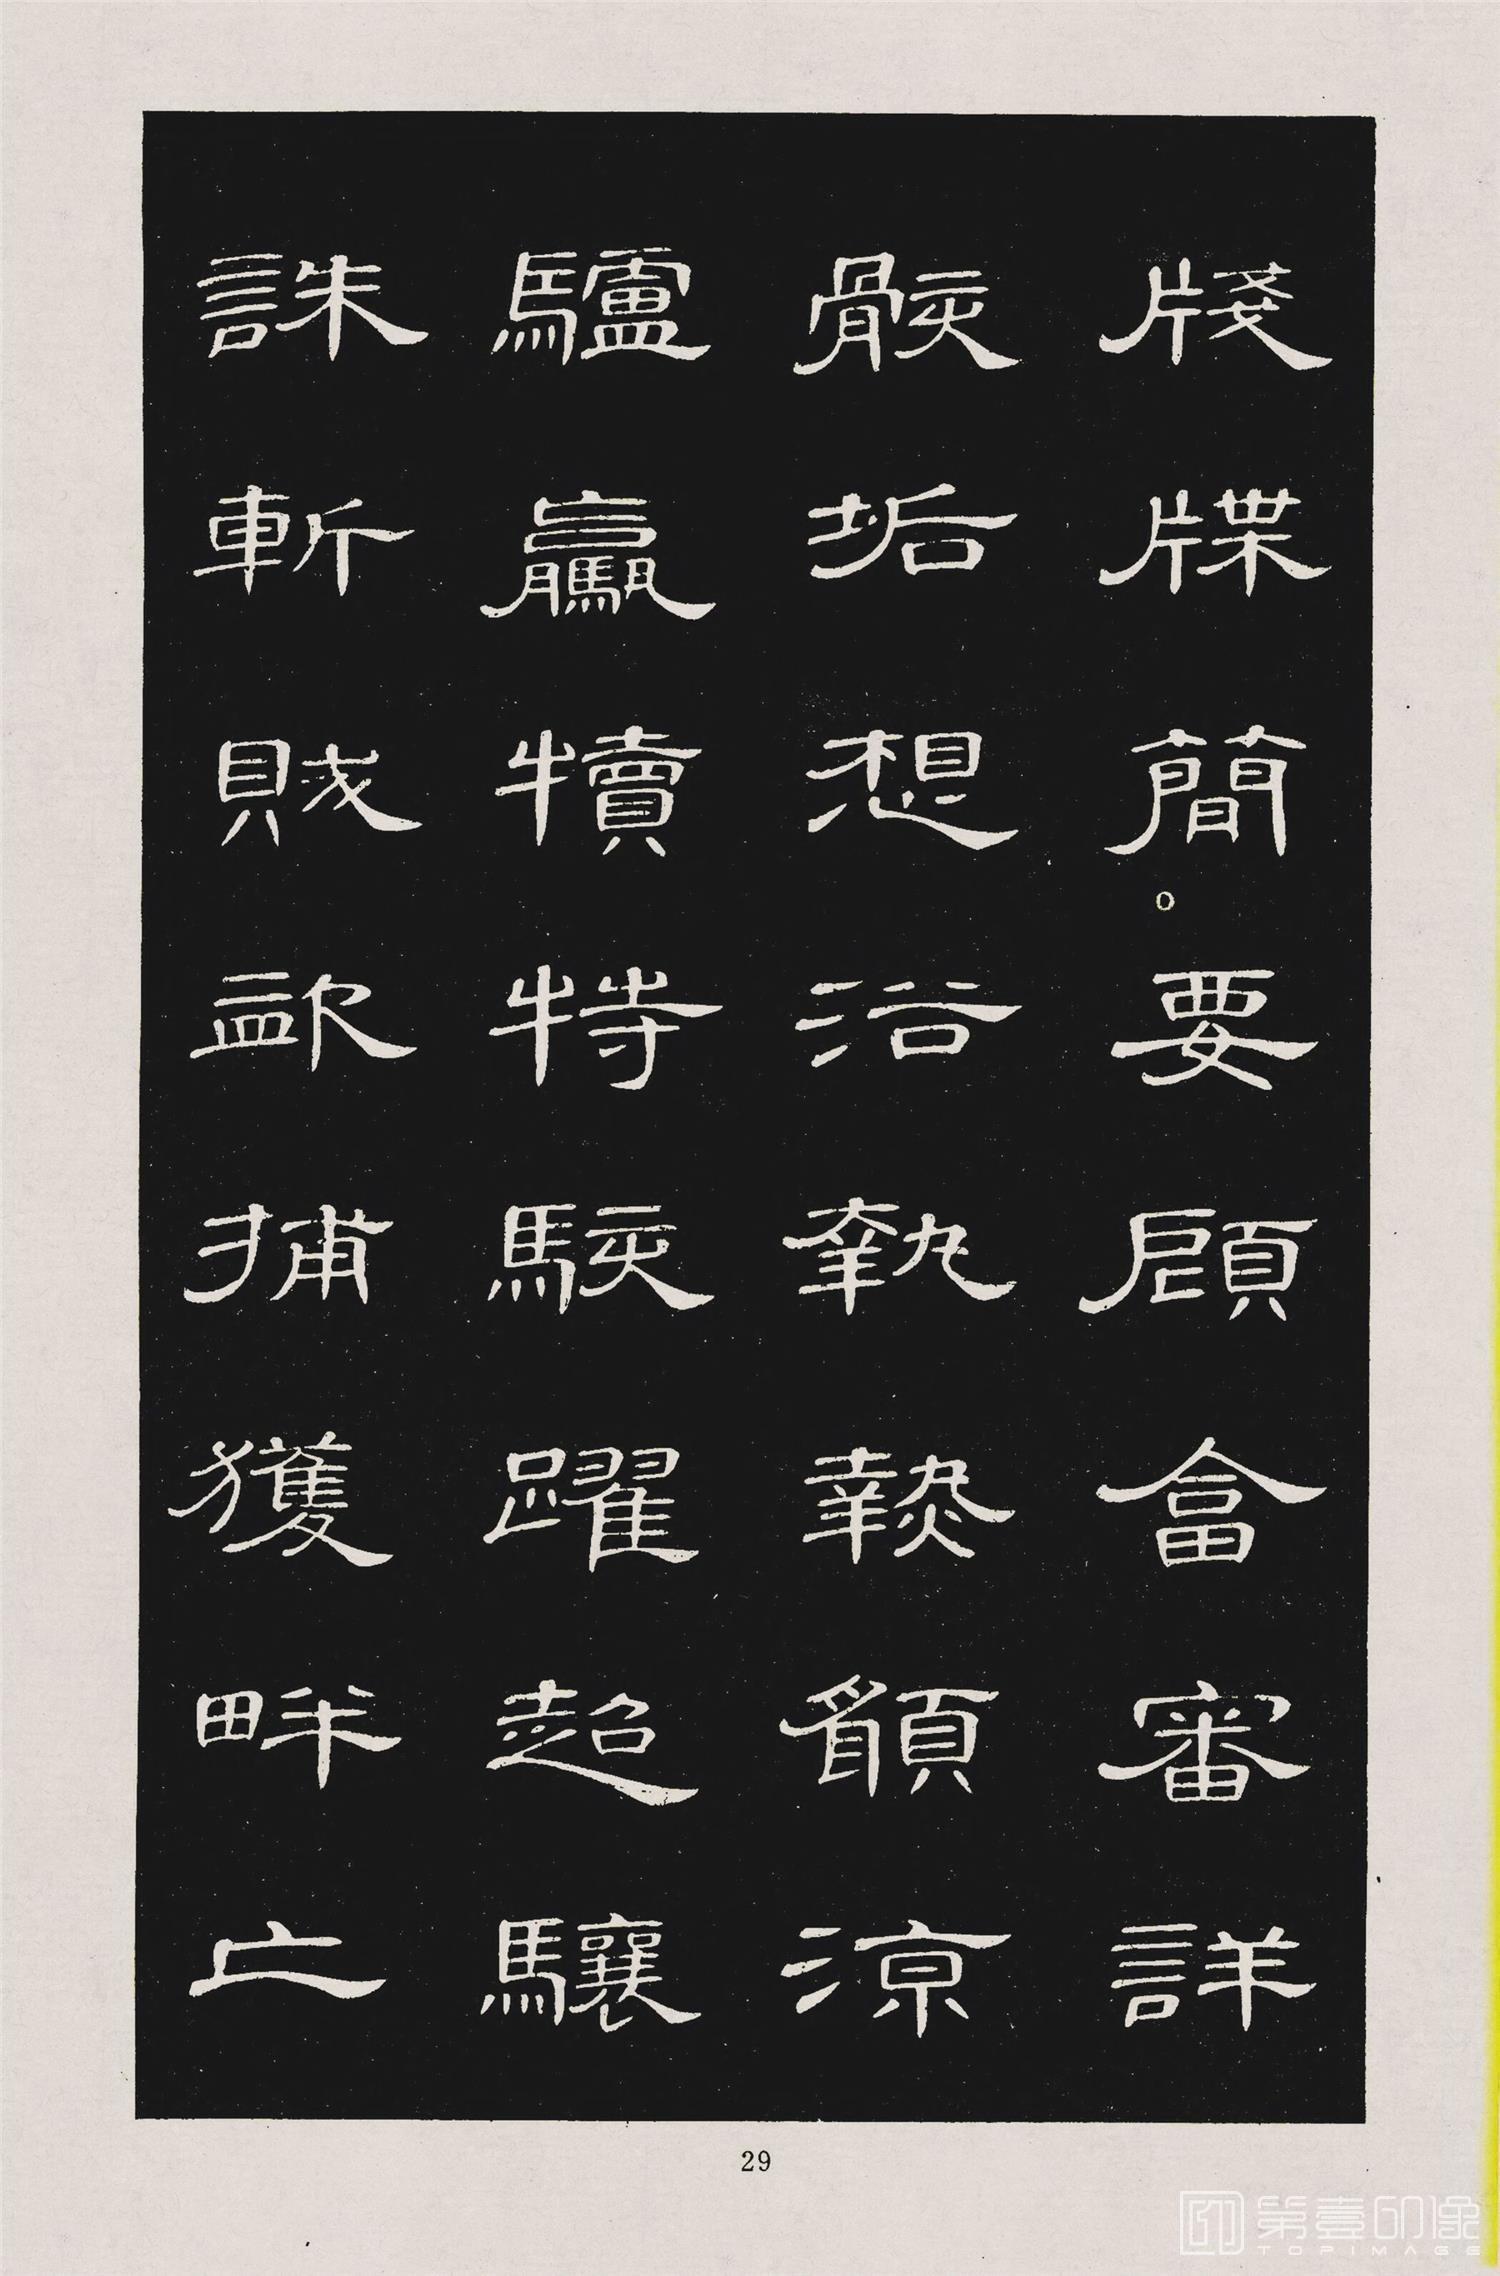 牋牒簡。要顧畣審詳
骸垢想浴執熱願涼
驢驘犢特駭躍超驤
誅斬賊盗捕獲畔亡
29
第壹印像
TOPIMAGE